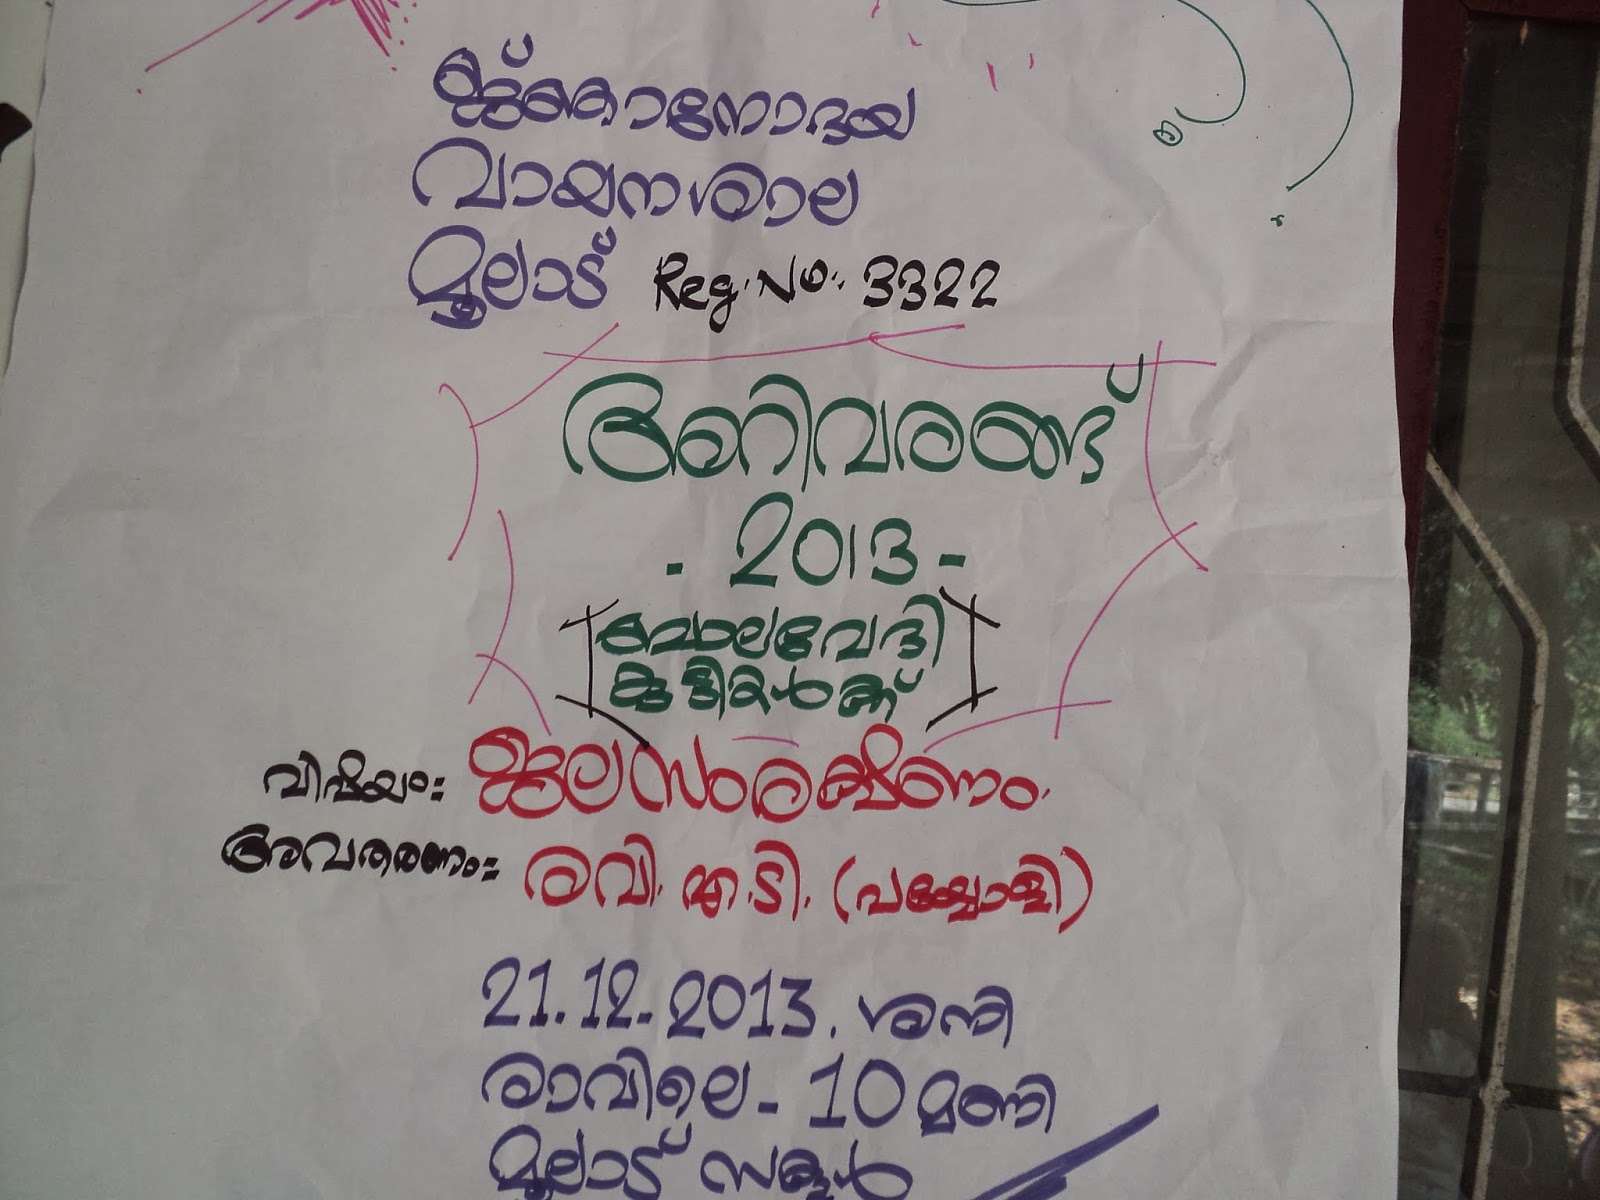 ജ്ഞാനോദയ
വായനശാല
മൂലാട് Reg. No: 3322
അറിവരങ്ങ്
- 2013 -
ബാലവേദി
കുട്ടികൾക്ക്
വിഷയം: ജലസംരക്ഷണം.
അവതരണം: രവി. എ.ടി. (പയ്യോളി)
21.12.2013. ശനി
രാവിലെ - 10 മണി
മൂലാട് സ്കൂൾ